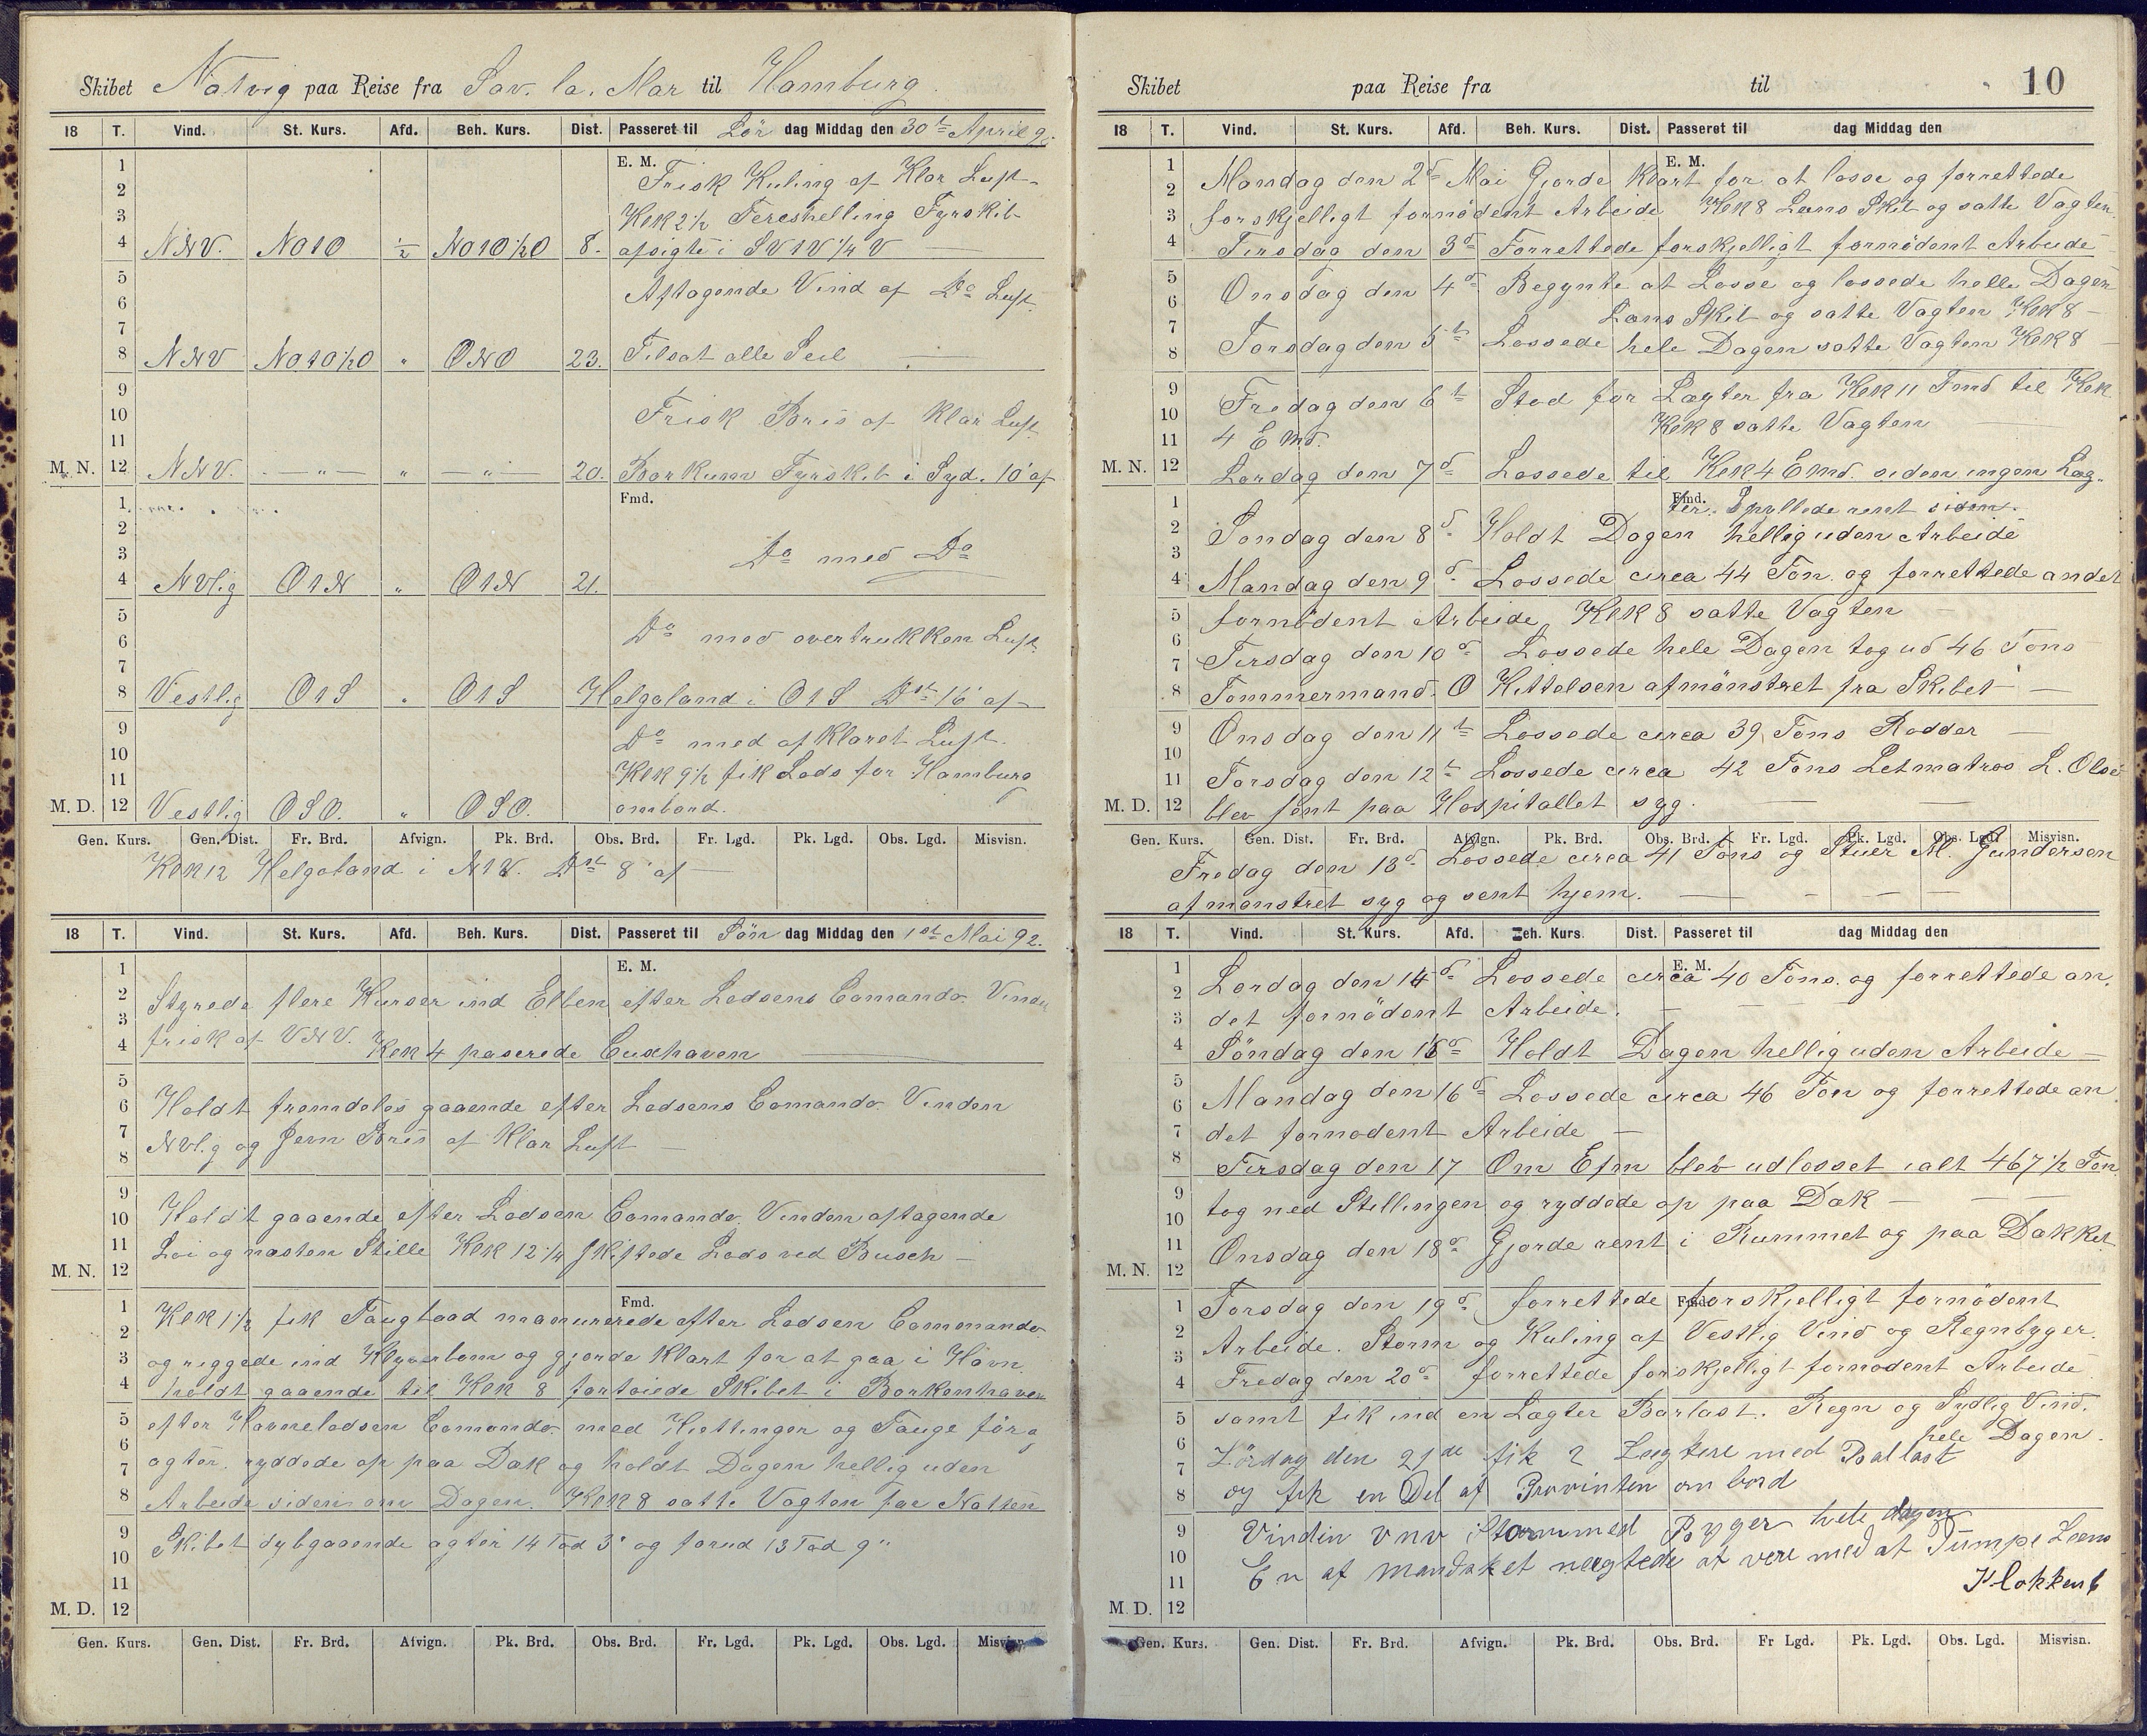 Skibet Natvig paa Reise fra Sav. la. Mar til Hamburg.
18 T. Vind. St. Kurs. Afd. Beh. Kurs. Dist. Passeret til Lör dag Middag den 30te April 92.
1 E. M. Frisk Kuling af Klar Luft
2
3 Klk 2 1/2 Tereshelling Fyrskib
4 NNV. NO1O 1/2 NO1O 1/2 O 8. afsigte i SV1V 1/4 V
5 Aftagende Vind af Do Luft
6
7
8 NNV NO1O 1/2 O " ONO 23. Tilsat alle Seil
9
10 Frisk Bris af Klar Luft
11
M. N. 12 NNV. — " — " — " — 20. Borkum Fyrskib i Syd. 10' af
1 Fmd.
2
3 Do med Do
4 NVlig O1N " O1N 21.
5
6 Do med overtrukken Luft
7
8 Vestlig O1S " O1S Helgoland i O1S Dst 16' af
9 Do med afklaret Luft.
10
11 Klk 9 1/2 fik Lods for Hamburg
M. D. 12 Vestlig OSO. " OSO. ombord.
Gen. Kurs. Gen. Dist. Fr. Brd. Afvign. Pk. Brd. Obs. Brd. Fr. Lgd. Pk. Lgd. Obs. Lgd. Misvisn.
Klk 12 Helgoland i N1V. Dst 8' af
18 T. Vind. St. Kurs. Afd. Beh. Kurs. Dist. Passeret til Sön dag Middag den 1st Mai 92.
1 E. M.
2 Styrede flere Kurser ind Elben efter Lodsens Comando. Vinden
3 frisk af VNV.
4 Klk 4 paserede Cuxhaven
5
6 Holdt fremdeles gaaende efter Lodsens Comando. Vinden
7 NVlig og Jevn Bris af Klar Luft
8
9
10 Holdt gaaende efter Lodsen Comando. Vinden aftagende
11 Loi og næsten Stille Klk 12 1/4 Skiftede Lods ved Busch
M. N. 12
1 Fmd. Klk 1 1/2 fik Taugbaad manurerede efter Lodsen Commando.
2
3 og riggede ind Klyverbom og gjorde Klart for at gaa i Havn
4 holdt gaaende til Klk 8 fortoiede Skibet i Borkenhaven
5 efter Havnelodsen Comando. med Kjettinger og Tauge för og
6
7 agter. ryddede op paa Dæk og holdt Dagen hellig uden
8 Arbeide siden om Dagen. Klk 8 satte Vagten for Natten
9 Skibet dybgaaende agter 14 Fod 3" og forud 13 Fod 9"
10
11
M. D. 12
Gen. Kurs. Gen. Dist. Fr. Brd. Afvign. Pk. Brd. Obs. Brd. Fr. Lgd. Pk. Lgd. Obs. Lgd. Misvisn.
Skibet paa Reise fra til 10
18 T. Vind. St. Kurs. Afd. Beh. Kurs. Dist. Passeret til dag Middag den
1 E. M.
2 Mandag den 2d Mai Gjorde Klart for at losse og forrettede
3 forskjelligt fornödent Arbeide Klk 8 Læns Skib og satte Vagten.
4 Tirsdag den 3d Forrettede forskjelligt fornödent Arbeide
5 Onsdag den 4d Begynte at Losse og lossede helle Dagen
6
7 Læns Skib og satte Vagten Klk 8
8 Torsdag den 5te Lossede hele Dagen satte Vagten Klk 8
9 Fredag den 6te Stod for Lægter fra Klk 11 Fmd til Klk
10
11 4 Emd. Klk 8 satte Vagten
M. N. 12 Lørdag den 7d Lossede til Klk 4 Emd. siden ingen Læg-
1 Fmd. ter. Spyllede rent siden.
2 Søndag den 8d Holdt Dagen hellig uden Arbeide
3
4 Mandag den 9d Lossede circa 44 Ton. og forrettede andet
5 fornödent Arbeide Klk 8 satte Vagten
6
7 Tirsdag den 10d Lossede hele Dagen tog ud 46 Tons
8 Tømmermand. O Kittelsen afmönstret fra Skibet
9 Onsdag den 11te Lossede circa 39 Tons Rødder
10
11 Torsdag den 12te Lossede circa 42 Tons Letmatros L. Olsen
M. D. 12 blev sent paa Hospitallet syg.
Gen. Kurs. Gen. Dist. Fr. Brd. Afvign. Pk. Brd. Obs. Brd. Fr. Lgd. Pk. Lgd. Obs. Lgd. Misvisn.
Fredag den 13d Lossede circa 41 Tons og Stuer M. Gundersen
afmønstret syg og sent hjem.
18 T. Vind. St. Kurs. Afd. Beh. Kurs. Dist. Passeret til dag Middag den
1 E. M.
2 Lørdag den 14d Lossede circa 40 Tons. og forrettede an,
3 det fornödent Arbeide.
4 Söndag den 15d Holdt Dagen hellig uden Arbeide
5
6 Mandag den 16d Lossede circa 46 Ton og forrettede an,
7 det fornødent Arbeide
8 Tirsdag den 17 Om Efm blev udlosset ialt 467 1/2 Ton
9
10 tog ned Stillingen og ryddede op paa Dæk
11 Onsdag den 18d Gjorde rent i Rummet og paa Dækket
M. N. 12
1 Torsdag den 19d forrettede Fmd. forskjelligt fornödent
2
3 Arbeide. Storm og Kuling af Vestlig Vind og Regnbyger.
4 Fredag den 20d forrettede forskjelligt fornødent Arbeide
5 samt fik ind en Lægter Barlast. Regn og Sydlig Vind.
6 hele Dagen.
7 Lördag den 21de fik 2 Lægtere med Ballast
8 og fik en Del af Provinten om bord
9 Vinden VNV Storm med Byger hele dagen
10 En af mandsket nægtede at vere med at Pumpe Lens
11 Klokken 6
M. D. 12
Gen. Kurs. Gen. Dist. Fr. Brd. Afvign. Pk. Brd. Obs. Brd. Fr Lgd. Pk. Lgd. Obs. Lgd. Misvisn.